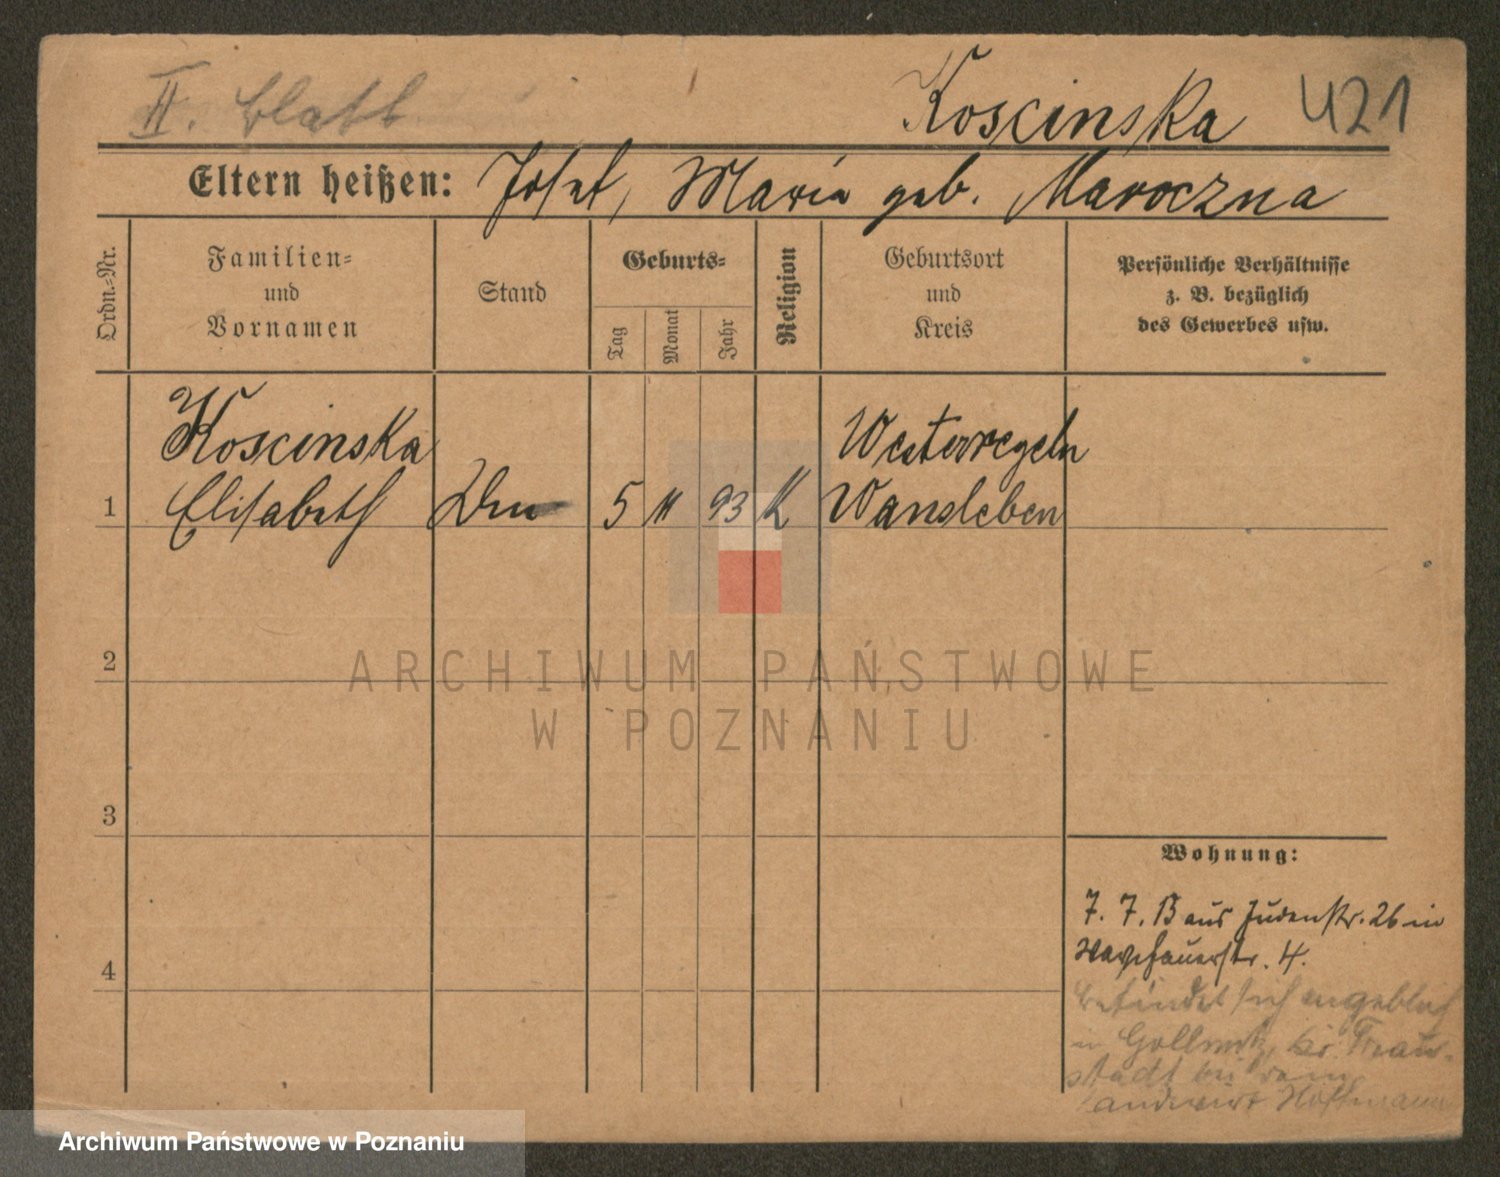 II. Blatt
Koscinska 421
Eltern heißen: Josef, Maria geb. Maroczna
Ordn.-Nr.
Familien-
und
Vornamen
Stand
Geburts-
Tag
Monat
Jahr
Religion
Geburtsort
und
Kreis
Persönliche Verhältnisse
z. B. bezüglich
des Gewerbes usw.
Koscinska Westerregeln
1 Elisabeth 5 11 93 K Wansleben
2
3
4
Wohnung:
7. 7. 13 aus Judenstr. 26 in
Warschauerstr. 4.
befindet sich angeblich
in Kr. Frau-
stadt bei dem
Landwirt Hoffmann
ARCHIWUM PAŃSTWOWE
W POZNANIU
Archiwum Państwowe w Poznaniu